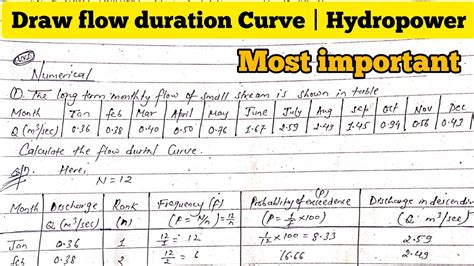 Draw flow duration Curve | Hydropower
Most important
Numerical
The long term monthly flow of small stream is shown in table
Month Jan feb Mar April May June July Aug sep Oct Nov Dec
Q (m³/sec) 0.36 0.38 0.40 0.50 0.76 1.67 2.59 2.49 1.45 0.94 0.56 0.43
Calculate the flow durtn Curve.
Here,
N=12
Month Discharge Rank Frequency (f) Probability of exceedence (P) Discharge in descendin
Q (m³/sec) (n) (f = N/n) = 12/n (P = 1/f × 100) (Q m³/sec)
Jan 0.36 1 12/1 = 12 1/12 × 100 = 8.33 2.59
feb 0.38 2 12/2 = 6 16.66 2.49